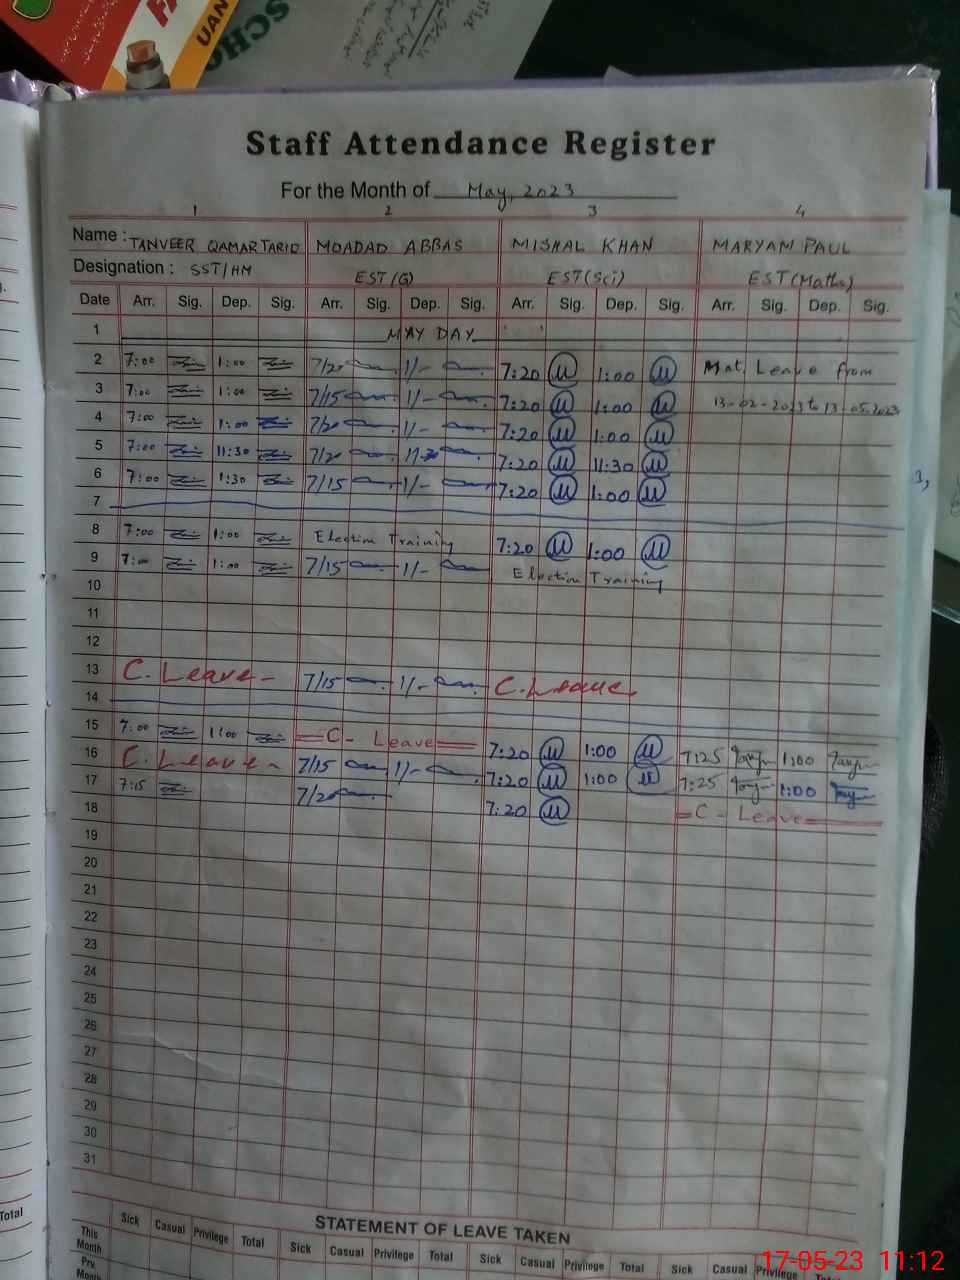 UAN
SCHO
Staff Attendance Register
For the Month of May, 2023
1 2 3 4
Name : TANVEER QAMAR TARIQ MOADAD ABBAS MISHAL KHAN MARYAM PAUL
Designation : SST/HM EST(G) EST(Sci) EST(Maths)
Date Arr. Sig. Dep. Sig. Arr. Sig. Dep. Sig. Arr. Sig. Dep. Sig. Arr. Sig. Dep. Sig.
1 MAY DAY
2 7:00 1:00 7/20 1/- 7:20 1:00 Mat. Leave from
3 7:00 1:00 7/15 1/- 7:20 1:00 13-02-2023 to 13-05-2023
4 7:00 1:00 7/20 1/- 7:20 1:00
5 7:00 11:30 7/20 7:20 11:30
6 7:00 1:30 7/15 1/- 7:20 1:00
7
8 7:00 1:00 Election Training 7:20 1:00
9 7:00 1:00 7/15 1/- Election Training
10
11
12
13 C. Leave - 7/15 1/- C. Leave
14
15 7:00 1:00 C - Leave 7:20 1:00 7:25 1:00
16 C. Leave - 7/15 1/- 7:20 1:00 7:25 1:00
17 7:15 7/20 7:20 C - Leave
18
19
20
21
22
23
24
25
26
27
28
29
30
31
STATEMENT OF LEAVE TAKEN
Sick Casual Privilege Total Sick Casual Privilege Total Sick Casual Privilege Total Sick Casual Privilege Total
This Month
Prv. Month
Total
17-05-23 11:12